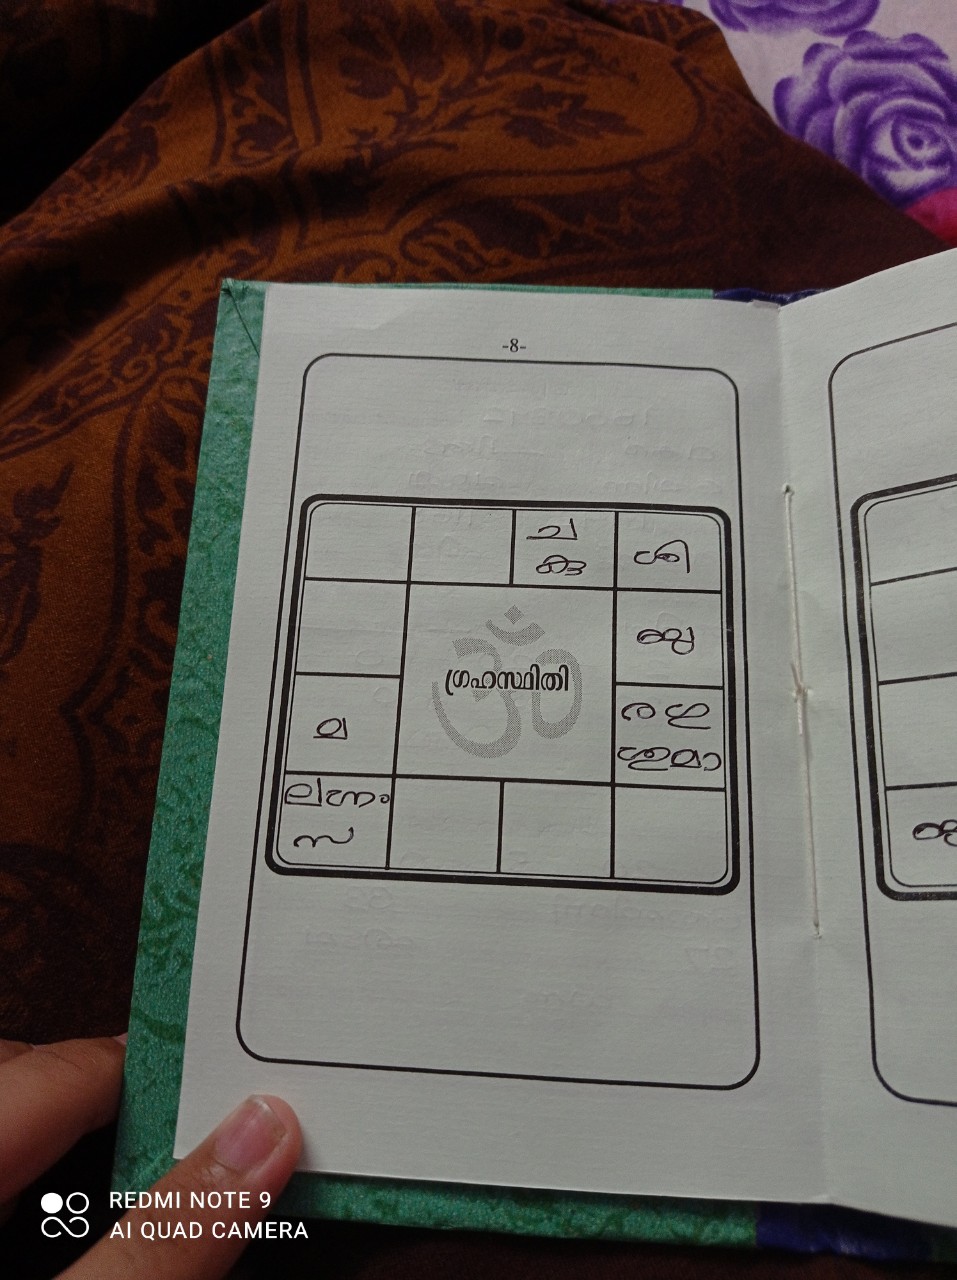 -8-
ച
കു
ശി
ബു
ഗ്രഹസ്ഥിതി
മ
ലഗ്നം
സ
REDMI NOTE 9
AI QUAD CAMERA